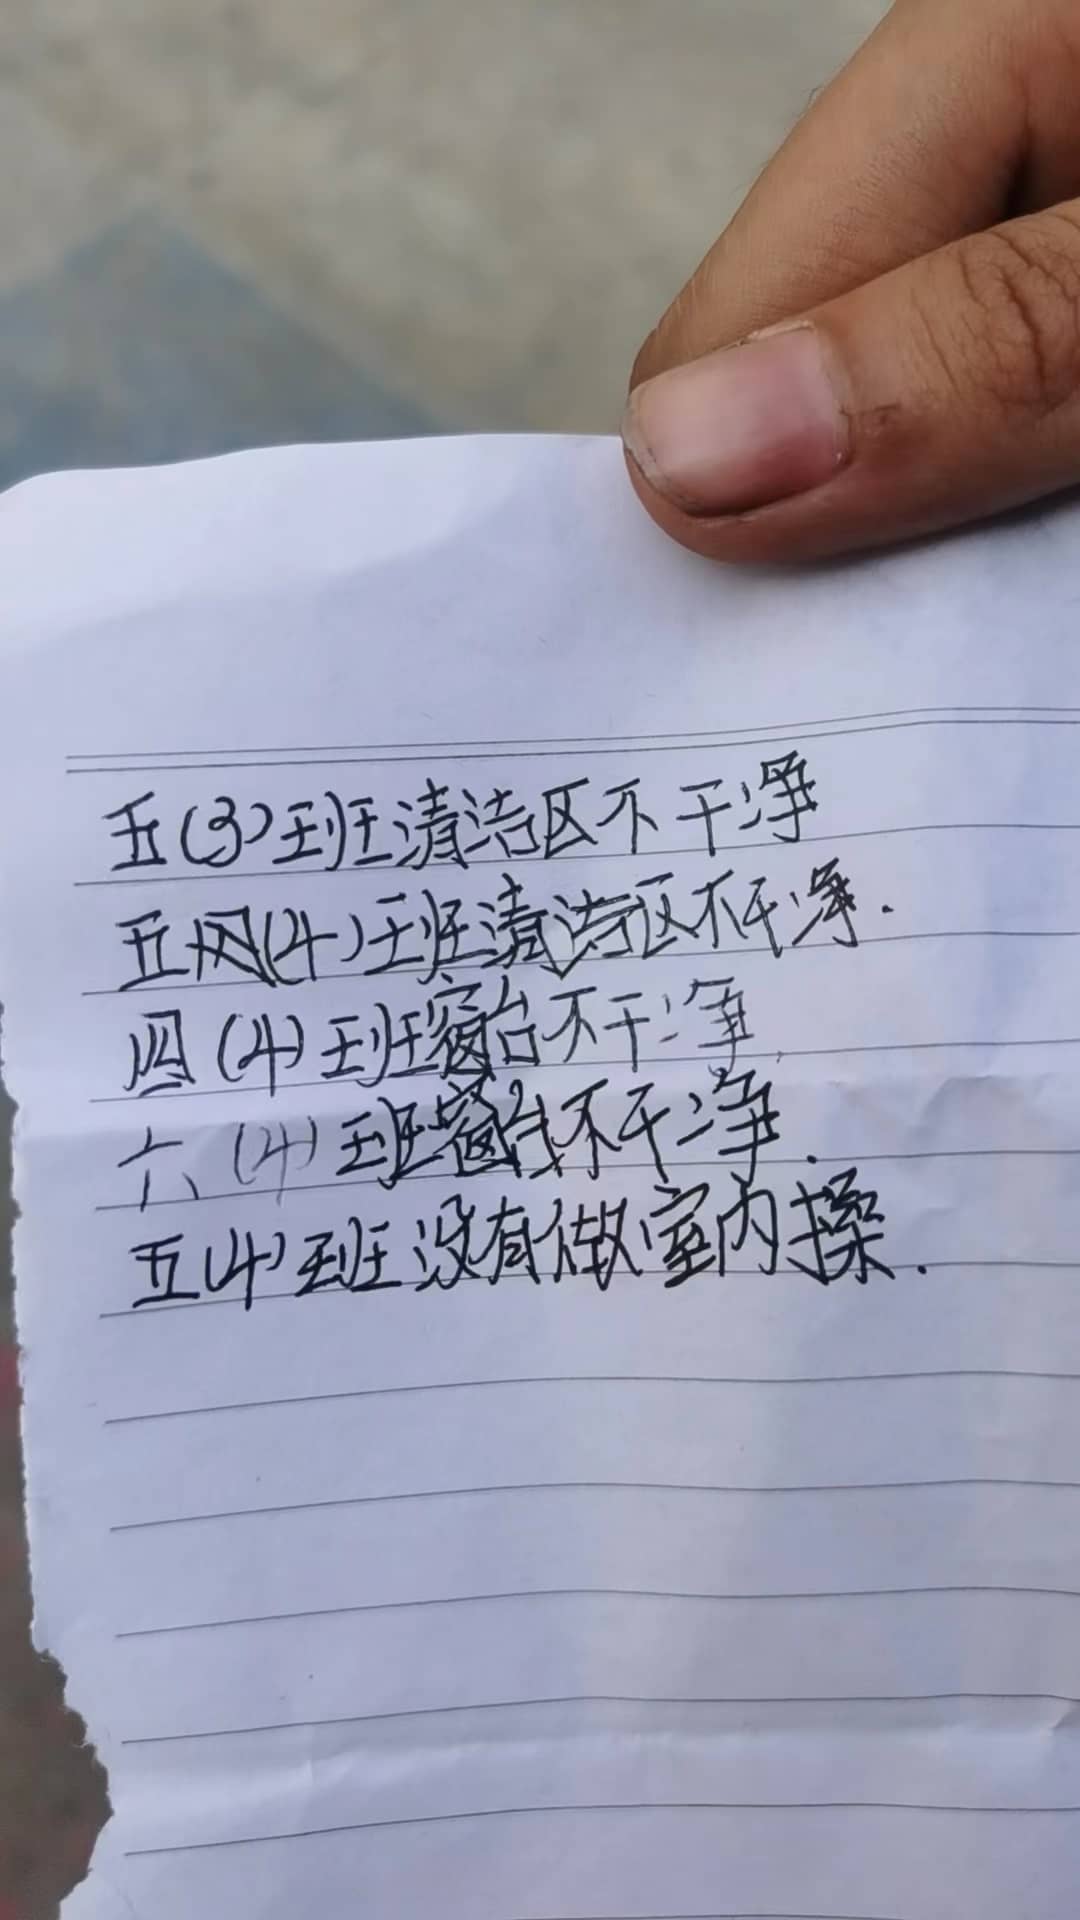 五(3)班清洁区不干净
五(4)班清洁区不干净.
四(4)班窗台不干净.
六(4)班窗台不干净.
五(4)班没有做室内操.